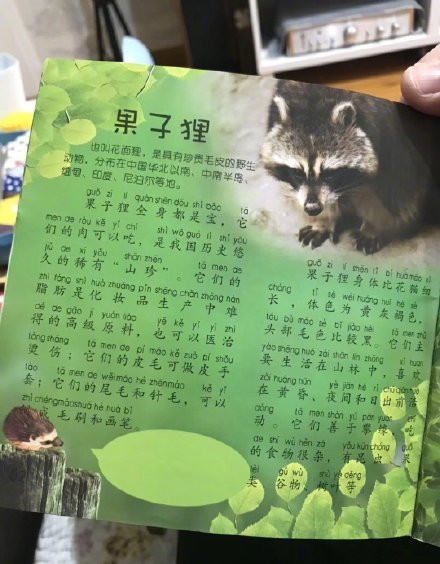 果子狸
也叫花面狸，是具有珍贵毛皮的野生
动物，分布在中国华北以南、中南半岛、
缅甸、印度、尼泊尔等地。
guǒ zi lí quán shēn dōu shì bǎo tā
果子狸全身都是宝，它
men de ròu kě yǐ chī shì wǒ guó lì shǐ yōu
们的肉可以吃，是我国历史悠
jiǔ de xī yǒu shān zhēn tā men de
久的稀有“山珍”。它们的
zhī fáng shì huà zhuāng pǐn shēng chǎn zhōng nán
脂肪是化妆品生产中难
dé de gāo jí yuán liào yě kě yǐ yī zhì
得的高级原料，也可以医治
tàng shāng tā men de pí máo kě zuò pí shǒu
烫伤；它们的皮毛可做皮手
tào tā men de wěi máo hé zhēn máo kě yǐ
套；它们的尾毛和针毛，可以
zhì chéng máo shuā hé huà bǐ
毛刷和画笔
guǒ zi lí shēn tǐ bǐ huā māo xì
果子狸身体比花猫细
cháng tǐ sè wéi huáng huī hè sè
长，体色为黄灰褐色，
tóu bù máo sè bǐ jiào hēi tā men zhǔ
头部毛色比较黑。它们主
yào shēng huó zài shān lín zhōng xǐ huan
要生活在山林中，喜欢
zài huáng hūn yè jiān hé rì chū qián huó
在黄昏、夜间和日出前活
dòng tā men shàn yú pān yuán chī
动。它们善于攀缘，吃
de shí wù hěn zá yǒu kūn chóng guǒ
的食物很杂，有昆虫、果
lèi gǔ wù shù yè děng
类、谷物、树叶等